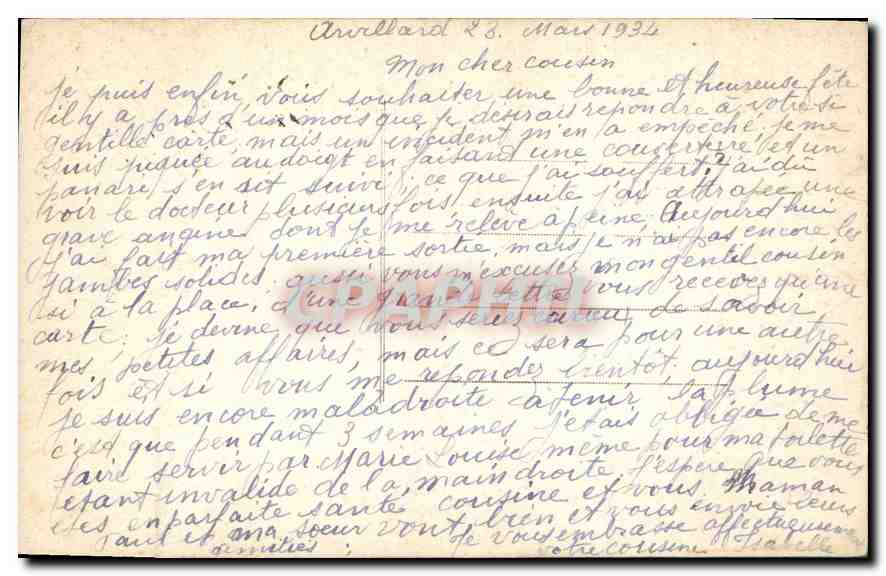 Arvillard 23 Mars 1934
Mon cher cousin
Je puis enfin vous souhaiter une bonne et heureuse fête
il y a près d'un mois que je désirais repondre à votre si
gentille carte, mais un incident m'en a empeché, je me
suis piquée au doigt en faisant une couverture et un
panari s'en sit suivi, ce que j'ai souffert? j'ai dû
voir le docteur plusieurs fois ensuite j'ai attrapée une
grave angine dont je me relève a peine Aujourd'hui
j'ai fait ma première sortie, mais je n'ai pas encore les
jambes solides, aussi vous m'excuses mon gentil cousin
si à la place d'une grande lettre vous receves qu'une
carte; je devine que vous seriez de savoir
mes petites affaires, mais ce sera pour une autre
fois et si vous me repondez bientôt, aujourd'hui
je suis encore maladroite a tenir la plume
c'est que pendant 3 semaines j'etais obligée de me
faire servir par Marie Louise même pour ma toilette
etant invalide de la main droite J'espere que vous
etes en parfaite santé cousine et vous Maman
Paul et ma sœur vont bien et vous envoie leurs
amitiés; Je vous embrasse affectueusement
votre cousine Isabelle
CPAPHIL